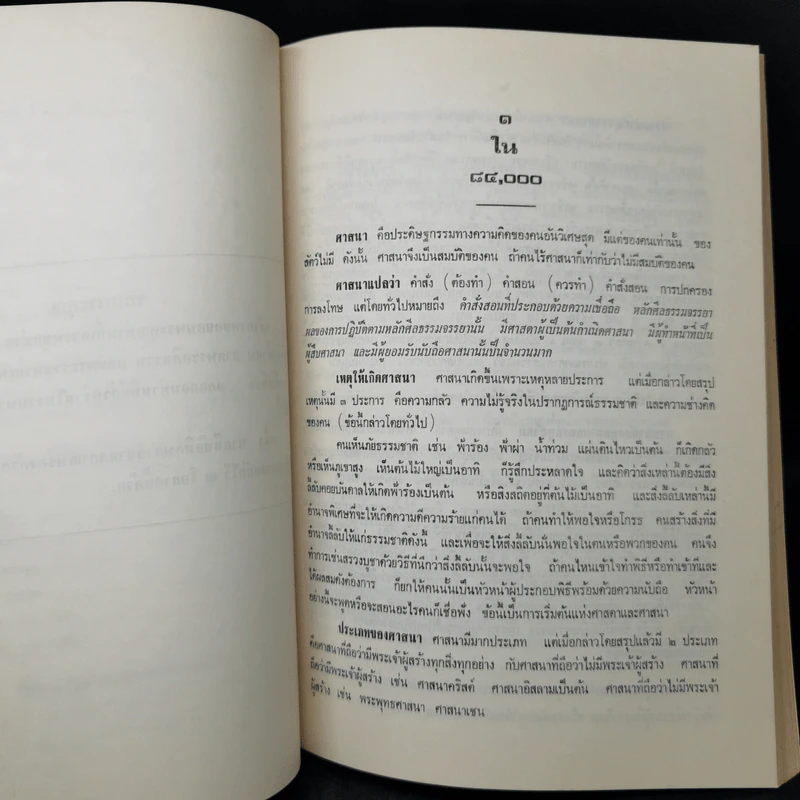 ๑
ใน
๘๔,๐๐๐
ศาสนา คือประดิษฐกรรมทางความคิดของคนอันวิเศษสุด มีแต่ของคนเท่านั้น ของ
สัตว์ไม่มี ดังนั้น ศาสนาจึงเป็นสมบัติของคน ถ้าคนไร้ศาสนาก็เท่ากับว่าไม่มีสมบัติของคน
ศาสนาแปลว่า คำสั่ง (ต้องทำ) คำสอน (ควรทำ) คำสั่งสอน การปกครอง
การลงโทษ แต่โดยทั่วไปหมายถึง คำสั่งสอนที่ประกอบด้วยความเชื่อถือ หลักศีลธรรมจรรยา
ผลของการปฏิบัติตามหลักศีลธรรมจรรยานั้น มีศาสดาผู้เป็นต้นกำเนิดศาสนา มีผู้ทำหน้าที่เป็น
ผู้สืบศาสนา และมีผู้ยอมรับนับถือศาสนานั้นเป็นจำนวนมาก
เหตุให้เกิดศาสนา ศาสนาเกิดขึ้นเพราะเหตุหลายประการ แต่เมื่อกล่าวโดยสรุป
เหตุนั้นมี ๓ ประการ คือความกลัว ความไม่รู้จริงในปรากฏการณ์ธรรมชาติ และความช่างคิด
ของคน (ข้อนี้กล่าวโดยทั่วไป)
คนเห็นภัยธรรมชาติ เช่น ฟ้าร้อง ฟ้าผ่า น้ำท่วม แผ่นดินไหวเป็นต้น ก็เกิดกลัว
หรือเห็นภูเขาสูง เห็นต้นไม้ใหญ่เป็นอาทิ ก็รู้สึกประหลาดใจ และคิดว่าสิ่งเหล่านี้ต้องมีสิ่ง
ลี้ลับคอยบันดาลให้เกิดฟ้าร้องเป็นต้น หรือสิงสถิตอยู่ที่ต้นไม้เป็นอาทิ และสิ่งลี้ลับเหล่านี้มี
อำนาจพิเศษที่จะให้เกิดความดีความร้ายแก่คนได้ ถ้าคนทำให้พอใจหรือโกรธ คนสร้างสิ่งที่มี
อำนาจลี้ลับให้แก่ธรรมชาติดังนี้ และเพื่อจะให้สิ่งลี้ลับนั้นพอใจในคนหรือพวกของคน คนจึง
ทำการเซ่นสรวงบูชาด้วยวิธีที่นึกว่าสิ่งลี้ลับนั้นจะพอใจ ถ้าคนไหนเข้าใจทำพิธีหรือทำเข้าทีและ
ได้ผลสมดังต้องการ ก็ยกให้คนนั้นเป็นหัวหน้าผู้ประกอบพิธีพร้อมด้วยความนับถือ หัวหน้า
อย่างนี้จะพูดหรือจะสอนอะไรคนก็เชื่อฟัง ข้อนี้เป็นการเริ่มต้นแห่งศาสดาและศาสนา
ประเภทของศาสนา ศาสนามีมากประเภท แต่เมื่อกล่าวโดยสรุปแล้วมี ๒ ประเภท
คือศาสนาที่ถือว่ามีพระเจ้าผู้สร้างทุกสิ่งทุกอย่าง กับศาสนาที่ถือว่าไม่มีพระเจ้าผู้สร้าง ศาสนาที่
ถือว่ามีพระเจ้าผู้สร้าง เช่น ศาสนาคริสต์ ศาสนาอิสลามเป็นต้น ศาสนาที่ถือว่าไม่มีพระเจ้า
ผู้สร้าง เช่น พระพุทธศาสนา ศาสนาเชน